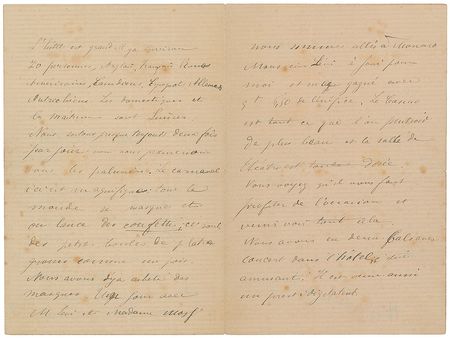 L'hôtel est grand il y a environ
20 personnes, Anglais, français Russes
Américains, Espagnols, Allemands
Autrichiens. Les domestiques et
la maison sont Suisses.
Nous sortons presque toujours deux fois
par jour; nous nous promenons
sous les palmiers. Le carnaval
ici est magnifique: tout le
monde se masque et
on lance des confetti, ce sont
des petites boules de plâtre
grosses comme un pois.
Nous avons déjà acheté des
masques. Un jour avec
M. et Madame
nous sommes allés à Monaco
Monsieur a joué pour
moi et m'a gagné avec
5f, 450 de bénéfice. Le Casino
est tout ce que l'on peut voir
de plus beau et la salle de
théâtre est toute dorée
Vous voyez qu'il nous faut
profiter de l'occasion et
venir voir tout cela
Nous avons eu deux
concert dans l'hôtel, très
amusant. Il est venu aussi
un prestidigitateur.